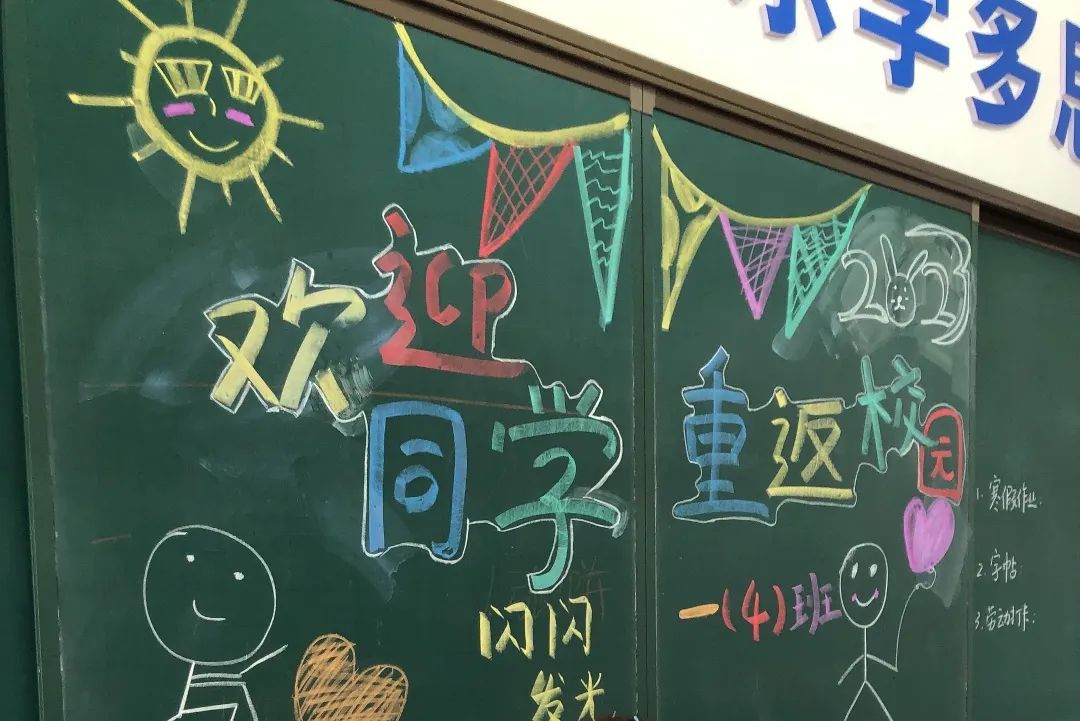 学多思
欢迎
同学
重返校园
2023
一(4)班
闪闪
发光
1. 寒假作业:
2. 字帖:
3. 劳动作: